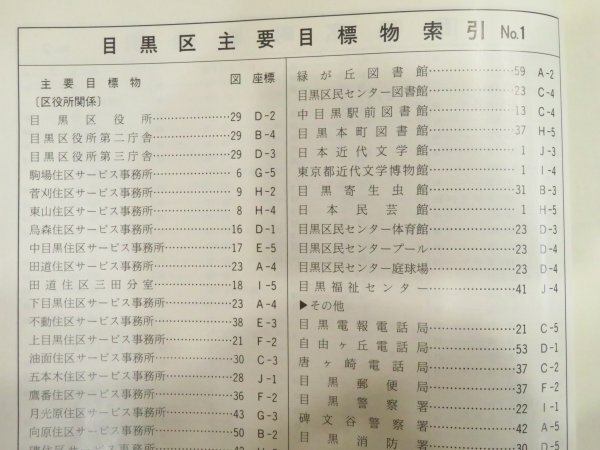 目黒区主要目標物索引 No.1
主要目標物 図 座標
〔区役所関係〕
目黒区役所 29 D-2
目黒区役所第二庁舎 29 B-4
目黒区役所第三庁舎 29 D-3
駒場住区サービス事務所 6 G-5
菅刈住区サービス事務所 9 H-2
東山住区サービス事務所 8 H-4
烏森住区サービス事務所 16 D-1
中目黒住区サービス事務所 17 E-5
田道住区サービス事務所 23 A-4
田道住区三田分室 18 I-5
下目黒住区サービス事務所 23 A-4
不動住区サービス事務所 38 E-3
上目黒住区サービス事務所 21 F-2
油面住区サービス事務所 30 C-3
五本木住区サービス事務所 28 J-1
鷹番住区サービス事務所 36 F-2
月光原住区サービス事務所 43 G-3
向原住区サービス事務所 50 B-2
住区サービス事務所
緑が丘図書館 59 A-2
目黒区民センター図書館 23 C-4
中目黒駅前図書館 13 C-4
目黒本町図書館 37 H-5
日本近代文学館 1 J-3
東京都近代文学博物館 1 I-4
目黒寄生虫館 31 B-3
日本民芸館 1 H-5
目黒区民センター体育館 23 D-3
目黒区民センタープール 23 D-4
目黒区民センター庭球場 23 D-4
目黒福祉センター 41 J-4
▶その他
目黒電報電話局 21 C-5
自由ヶ丘電話局 53 D-1
唐ヶ崎電話局 37 C-2
目黒郵便局 37 F-2
目黒警察署 22 I-1
碑文谷警察署 42 A-5
目黒消防署 30 D-5